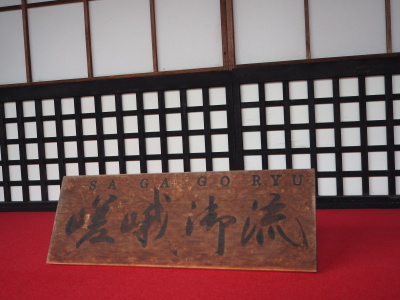 SAGAGORYU
嵯峨御流